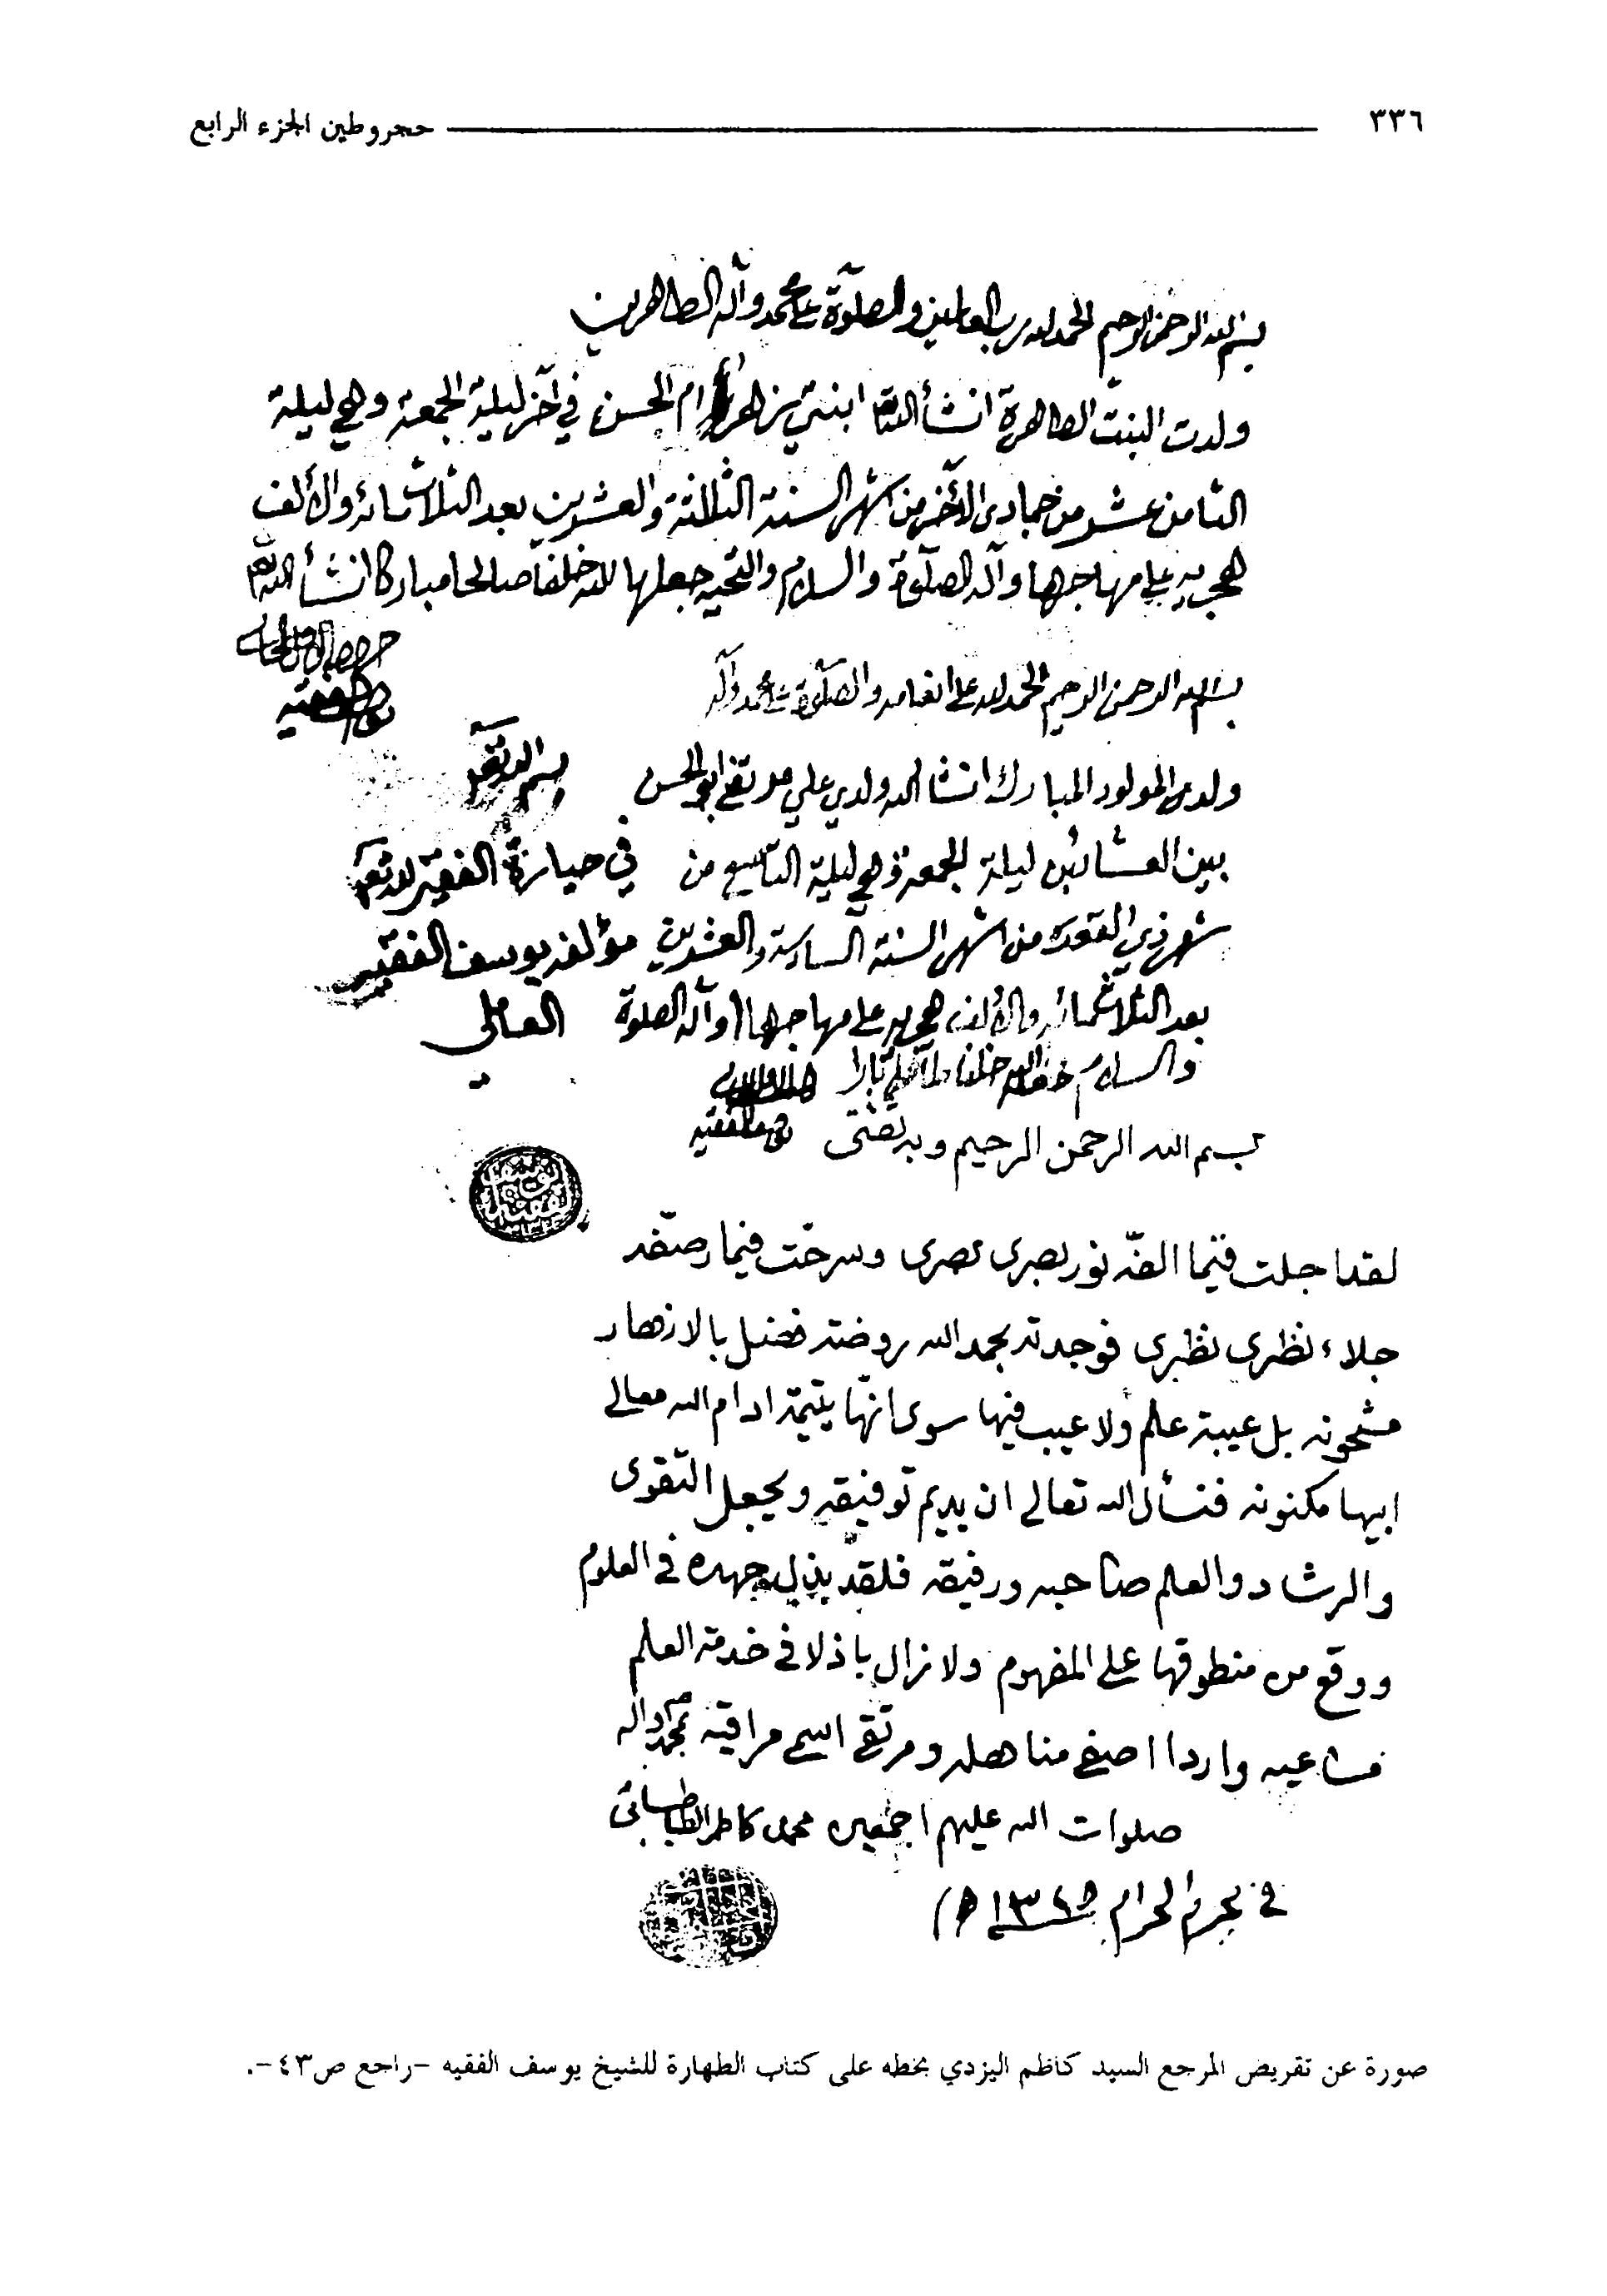 ٣٣٦
حجر وطين الجزء الرابع
بسم الله الرحمن الرحيم الحمد لله رب العالمين والصلوة على محمد وآله الطاهرين
ولدت البنت الطاهرة انشأ الله ابنتي زهراء ام الحسن في آخر ليلة الجمعة وهي ليلة
الثامن عشر من جمادى الآخر من اشهر السنة الثلاثة والعشرين بعد الثلاثمائة والألف
هجرية على مهاجرها وآله الصلوة والسلام والتحية جعلها الله خلفا صالحا مباركا انشأ الله
بسم الله الرحمن الرحيم الحمد لله على انعامه والصلوة على محمد وآله
ولد المولود المبارك انشا الله ولدي علي مرتضى ابو الحسن
بين العشائين ليلة الجمعة وهي ليلة التاسع من
شهر ذي القعدة من اشهر السنة السادسة والعشرين
بعد الثلاثمائة والألف هجرية على مهاجرها وآله الصلوة
والسلام
بسم الله
في حيازة الفقير لله
مؤلفه يوسف الفقيه
العاملي
بسم الله الرحمن الرحيم وبه ثقتي
لقد اجلت فيما الفه نور بصري بصري وسرحت فيما رصفه
جلاء نظري نظري فوجدته بحمد الله روضة فضل بالازهار
مشحونه بل عيبة علم ولا عيب فيها سوى انها يتيمة ادام الله معالي
ابيها مكنونه فنسأل الله تعالى ان يديم توفيقه ويجعل التقوى
والرشاد والعلم صاحبه ورفيقه فلقد بذل جهده في العلوم
ووقع من منطوقها على المفهوم ولا زال باذلا في خدمة العلم
مساعيه واردا اصفى مناهله ومرتقى اسمى مراقيه بمحمد وآله
صلوات الله عليهم اجمعين محمد كاظم الطباطبائي
في محرم الحرام
صورة عن تقريض المرجع السيد كاظم اليزدي بخطه على كتاب الطهارة للشيخ يوسف الفقيه -راجع ص٤٣-.